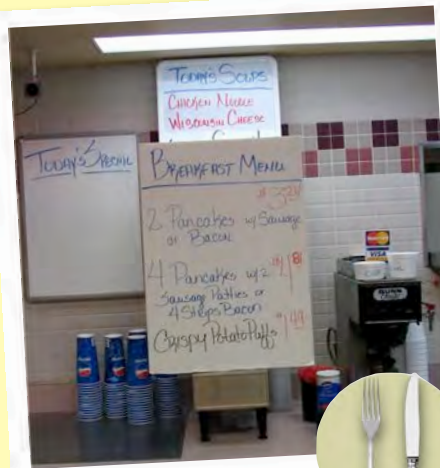 TODAY'S SOUPS
CHICKEN NOODLE
WISCONSIN CHEESE
TODAY'S SPECIAL
BREAKFAST MENU
2 Pancakes w/ Sausage
or Bacon
4 Pancakes w/ 2
Sausage Patties or
4 Strips Bacon
Crispy Potato Puffs $1.49
MasterCard
VISA
BUNN